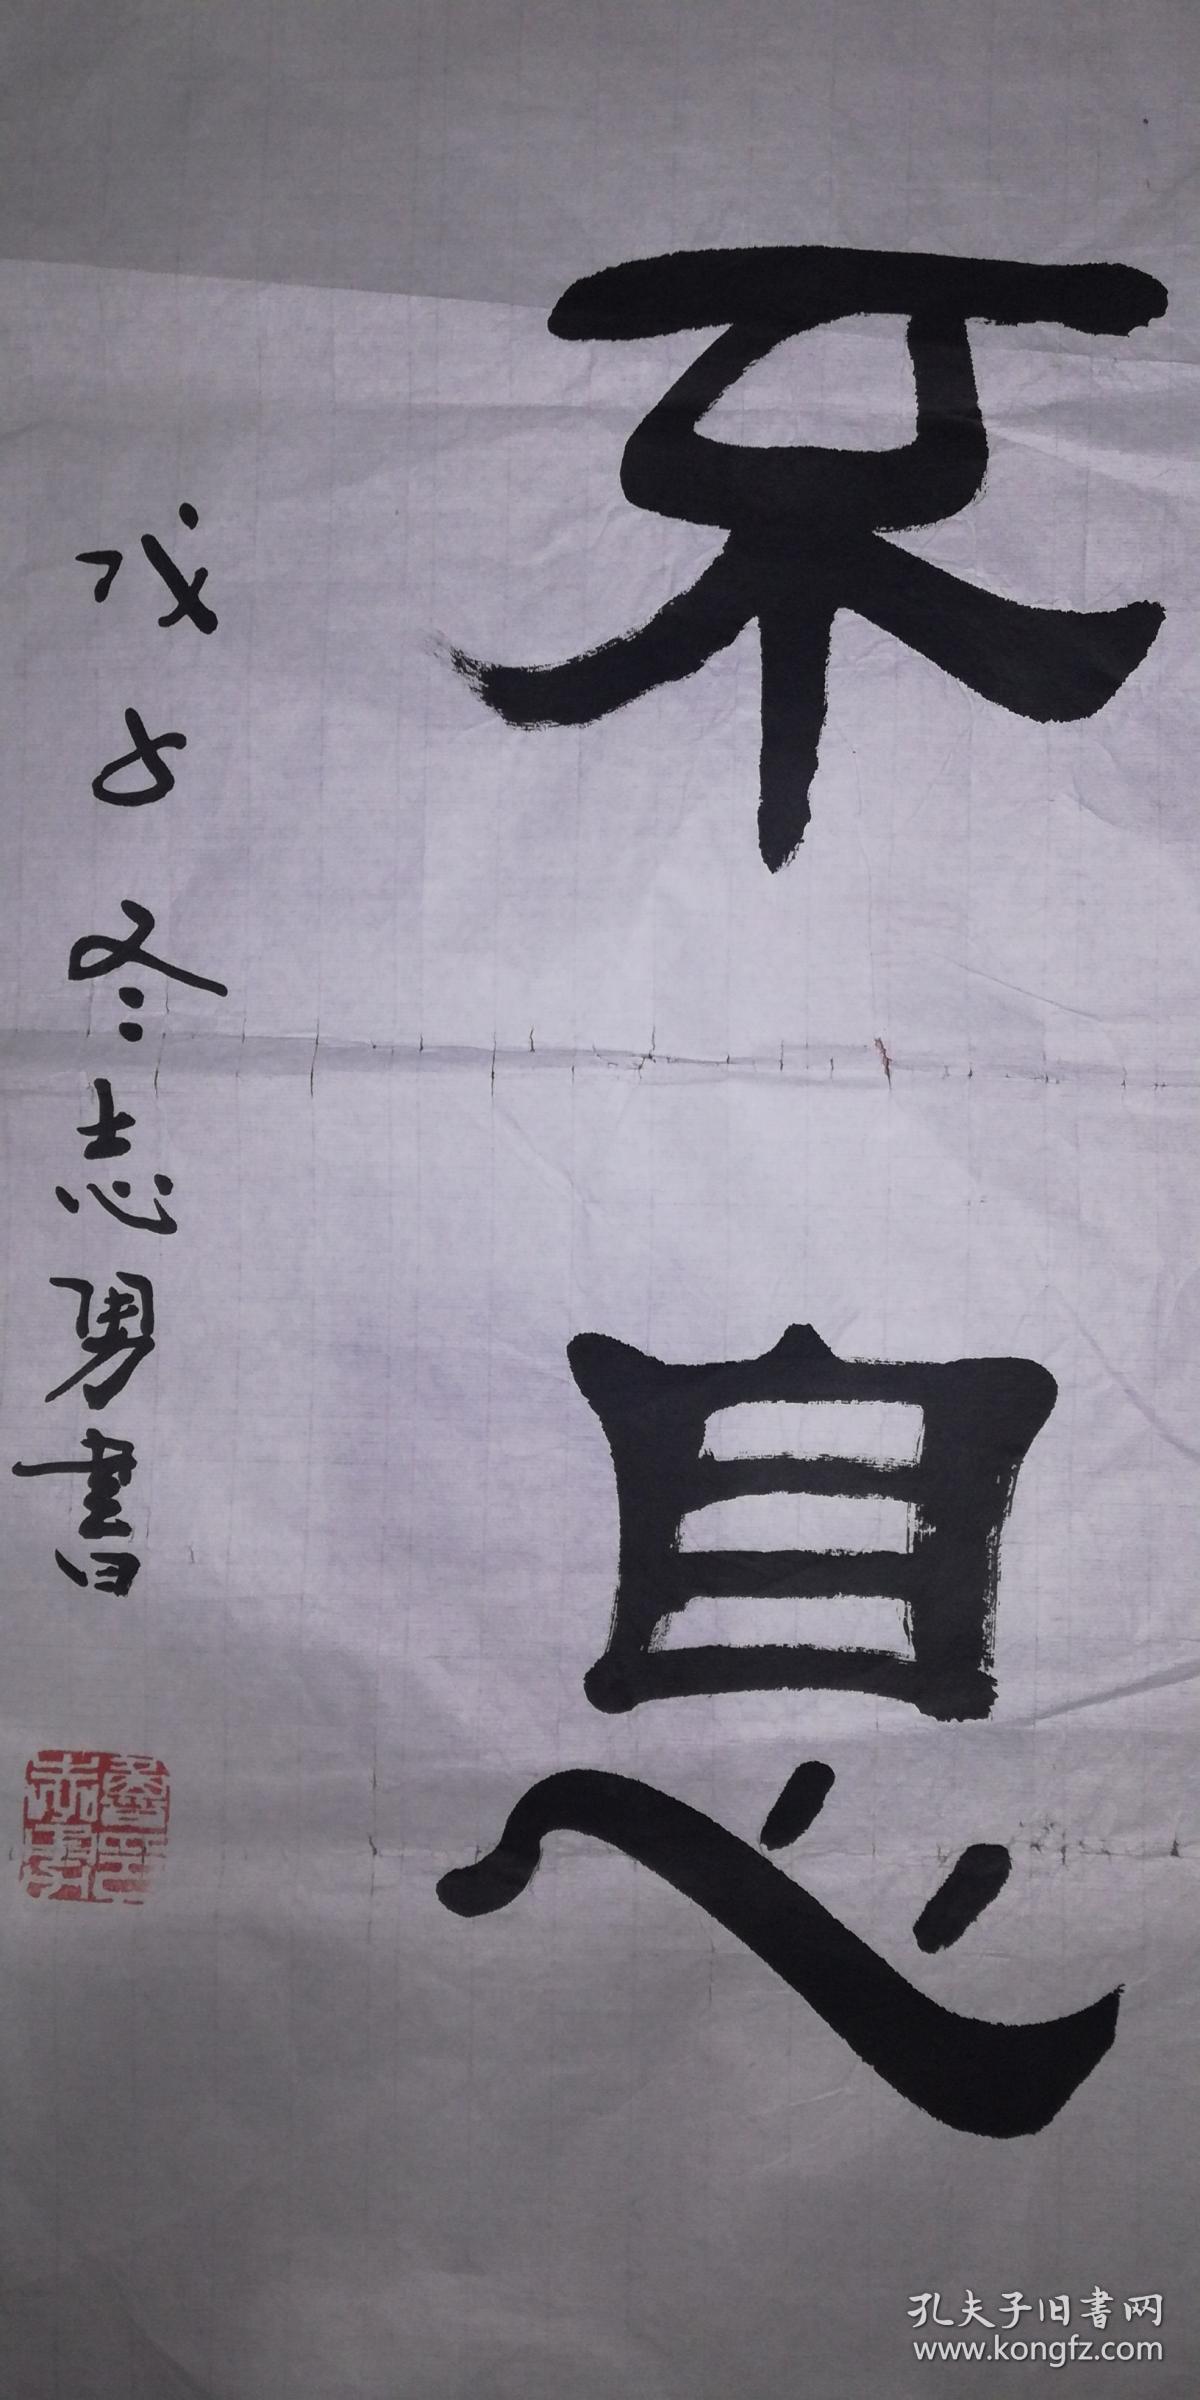 不息
戊子冬志勇書
孔夫子旧書网
www.kongfz.com